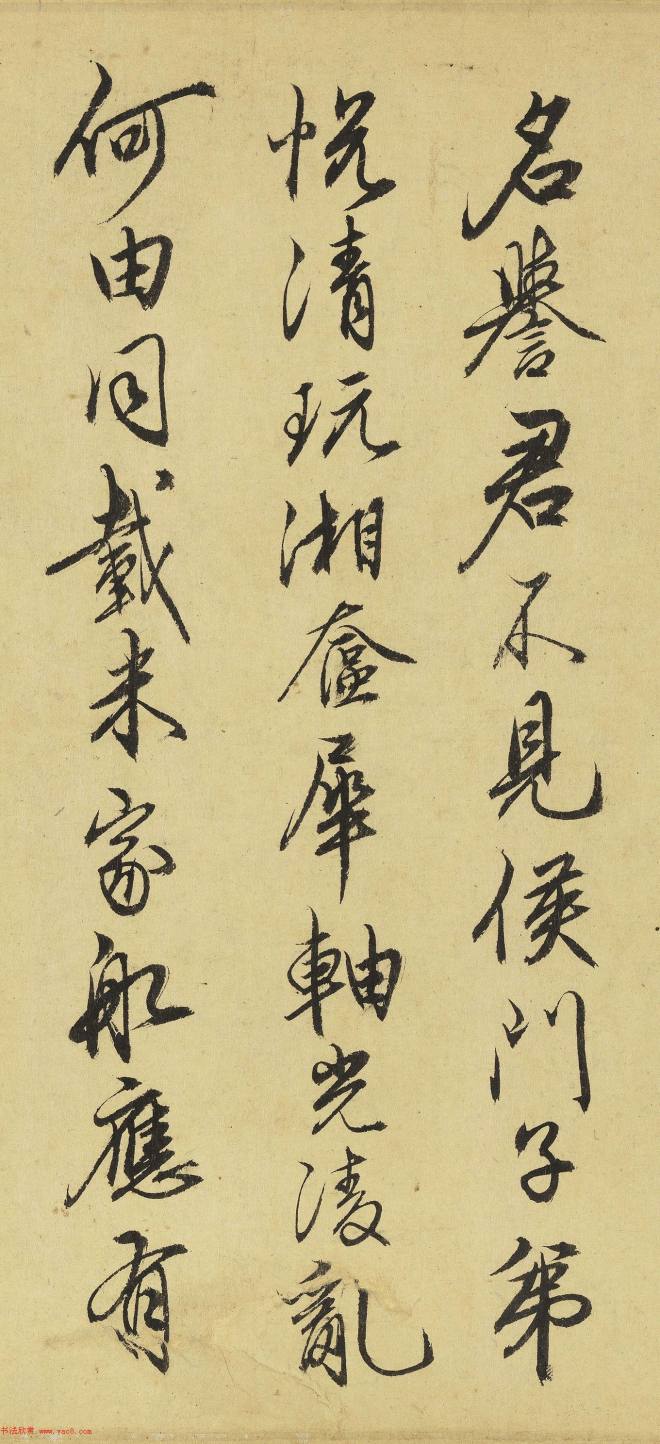 名譽君不見侯門子弟
悅清玩湘奩犀軸光淩亂
何由同載米家船應有
书法欣赏 www.yac8.com